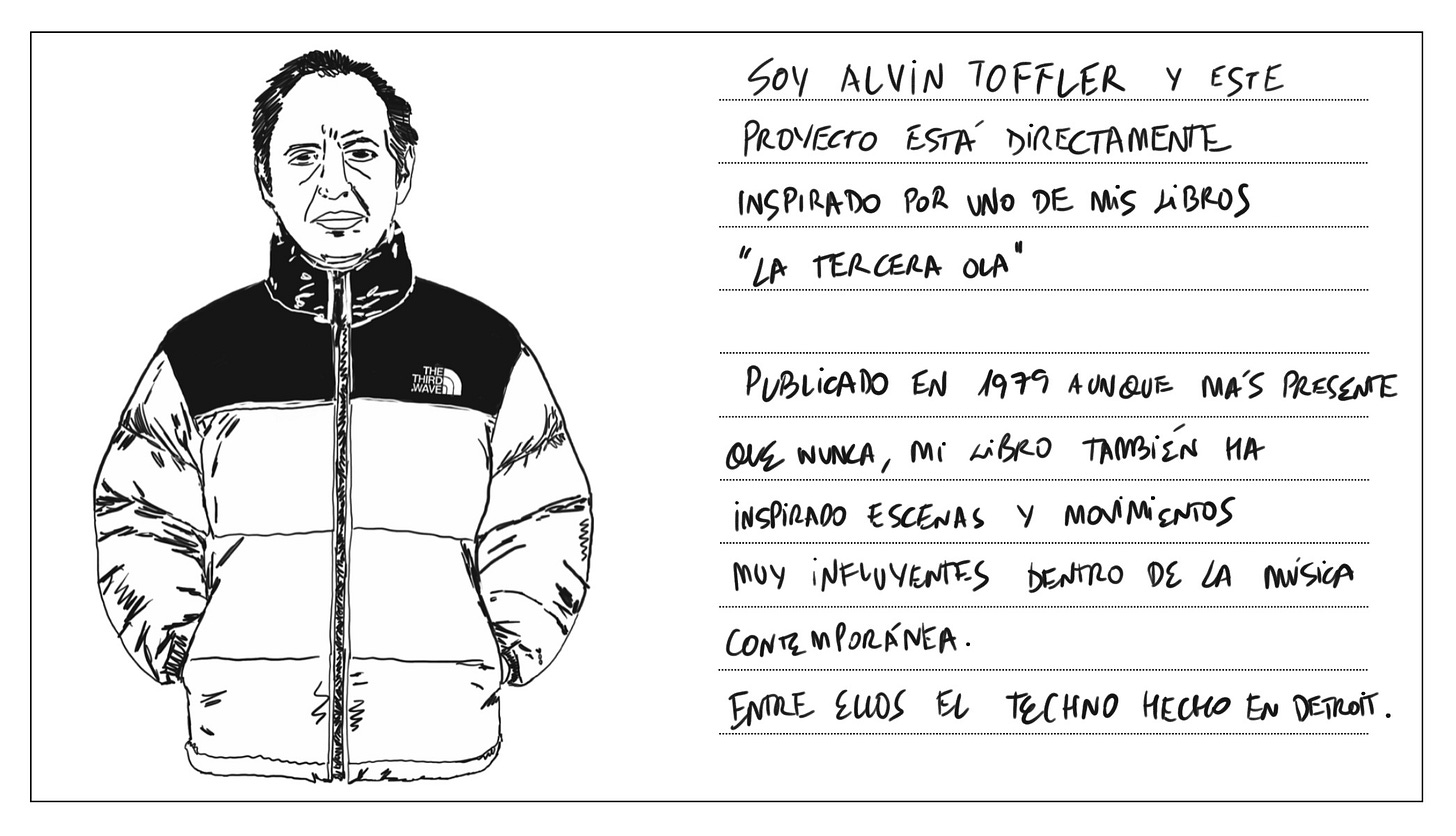 THE
THIRD
WAVE
SOY ALVIN TOFFLER Y ESTE
PROYECTO ESTÁ DIRECTAMENTE
INSPIRADO POR UNO DE MIS LIBROS
"LA TERCERA OLA"
PUBLICADO EN 1979 AUNQUE MÁS PRESENTE
QUE NUNCA, MI LIBRO TAMBIÉN HA
INSPIRADO ESCENAS Y MOVIMIENTOS
MUY INFLUYENTES DENTRO DE LA MÚSICA
CONTEMPORÁNEA.
ENTRE ELLOS EL TECHNO HECHO EN DETROIT.